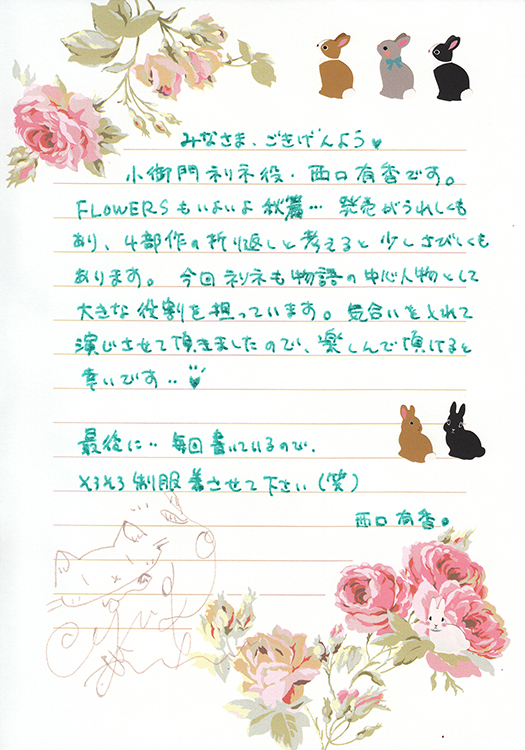 みなさま、ごきげんよう♥
小御門ネリネ役・西口有香です。
FLOWERSもいよいよ秋篇… 発売がうれしくも
あり、4部作の折り返しと考えると少しさびしくも
あります。今回ネリネも物語の中心人物として
大きな役割を担っています。気合いを入れて
演じさせて頂きましたので、楽しんで頂けると
幸いです‥♥
最後に‥毎回書いているので、
そろそろ制服着させて下さい(笑)
西口有香。